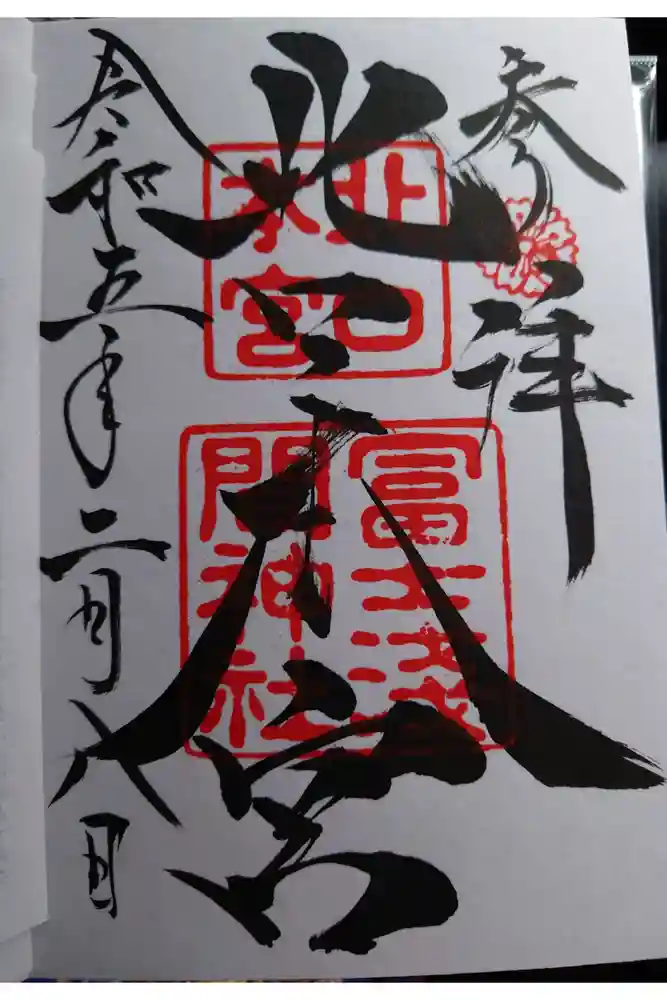 参拝
北口本宮
北口
本宮
冨士浅
間神社
令和五年二月八日